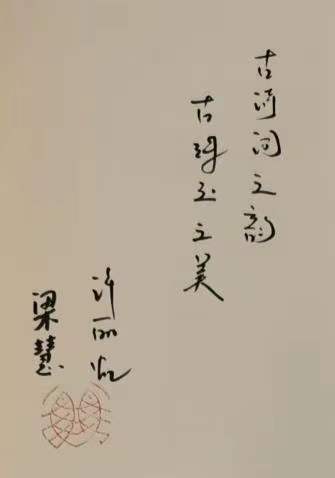 古诗词之韵
古珠玉之美
许丽虹
梁慧